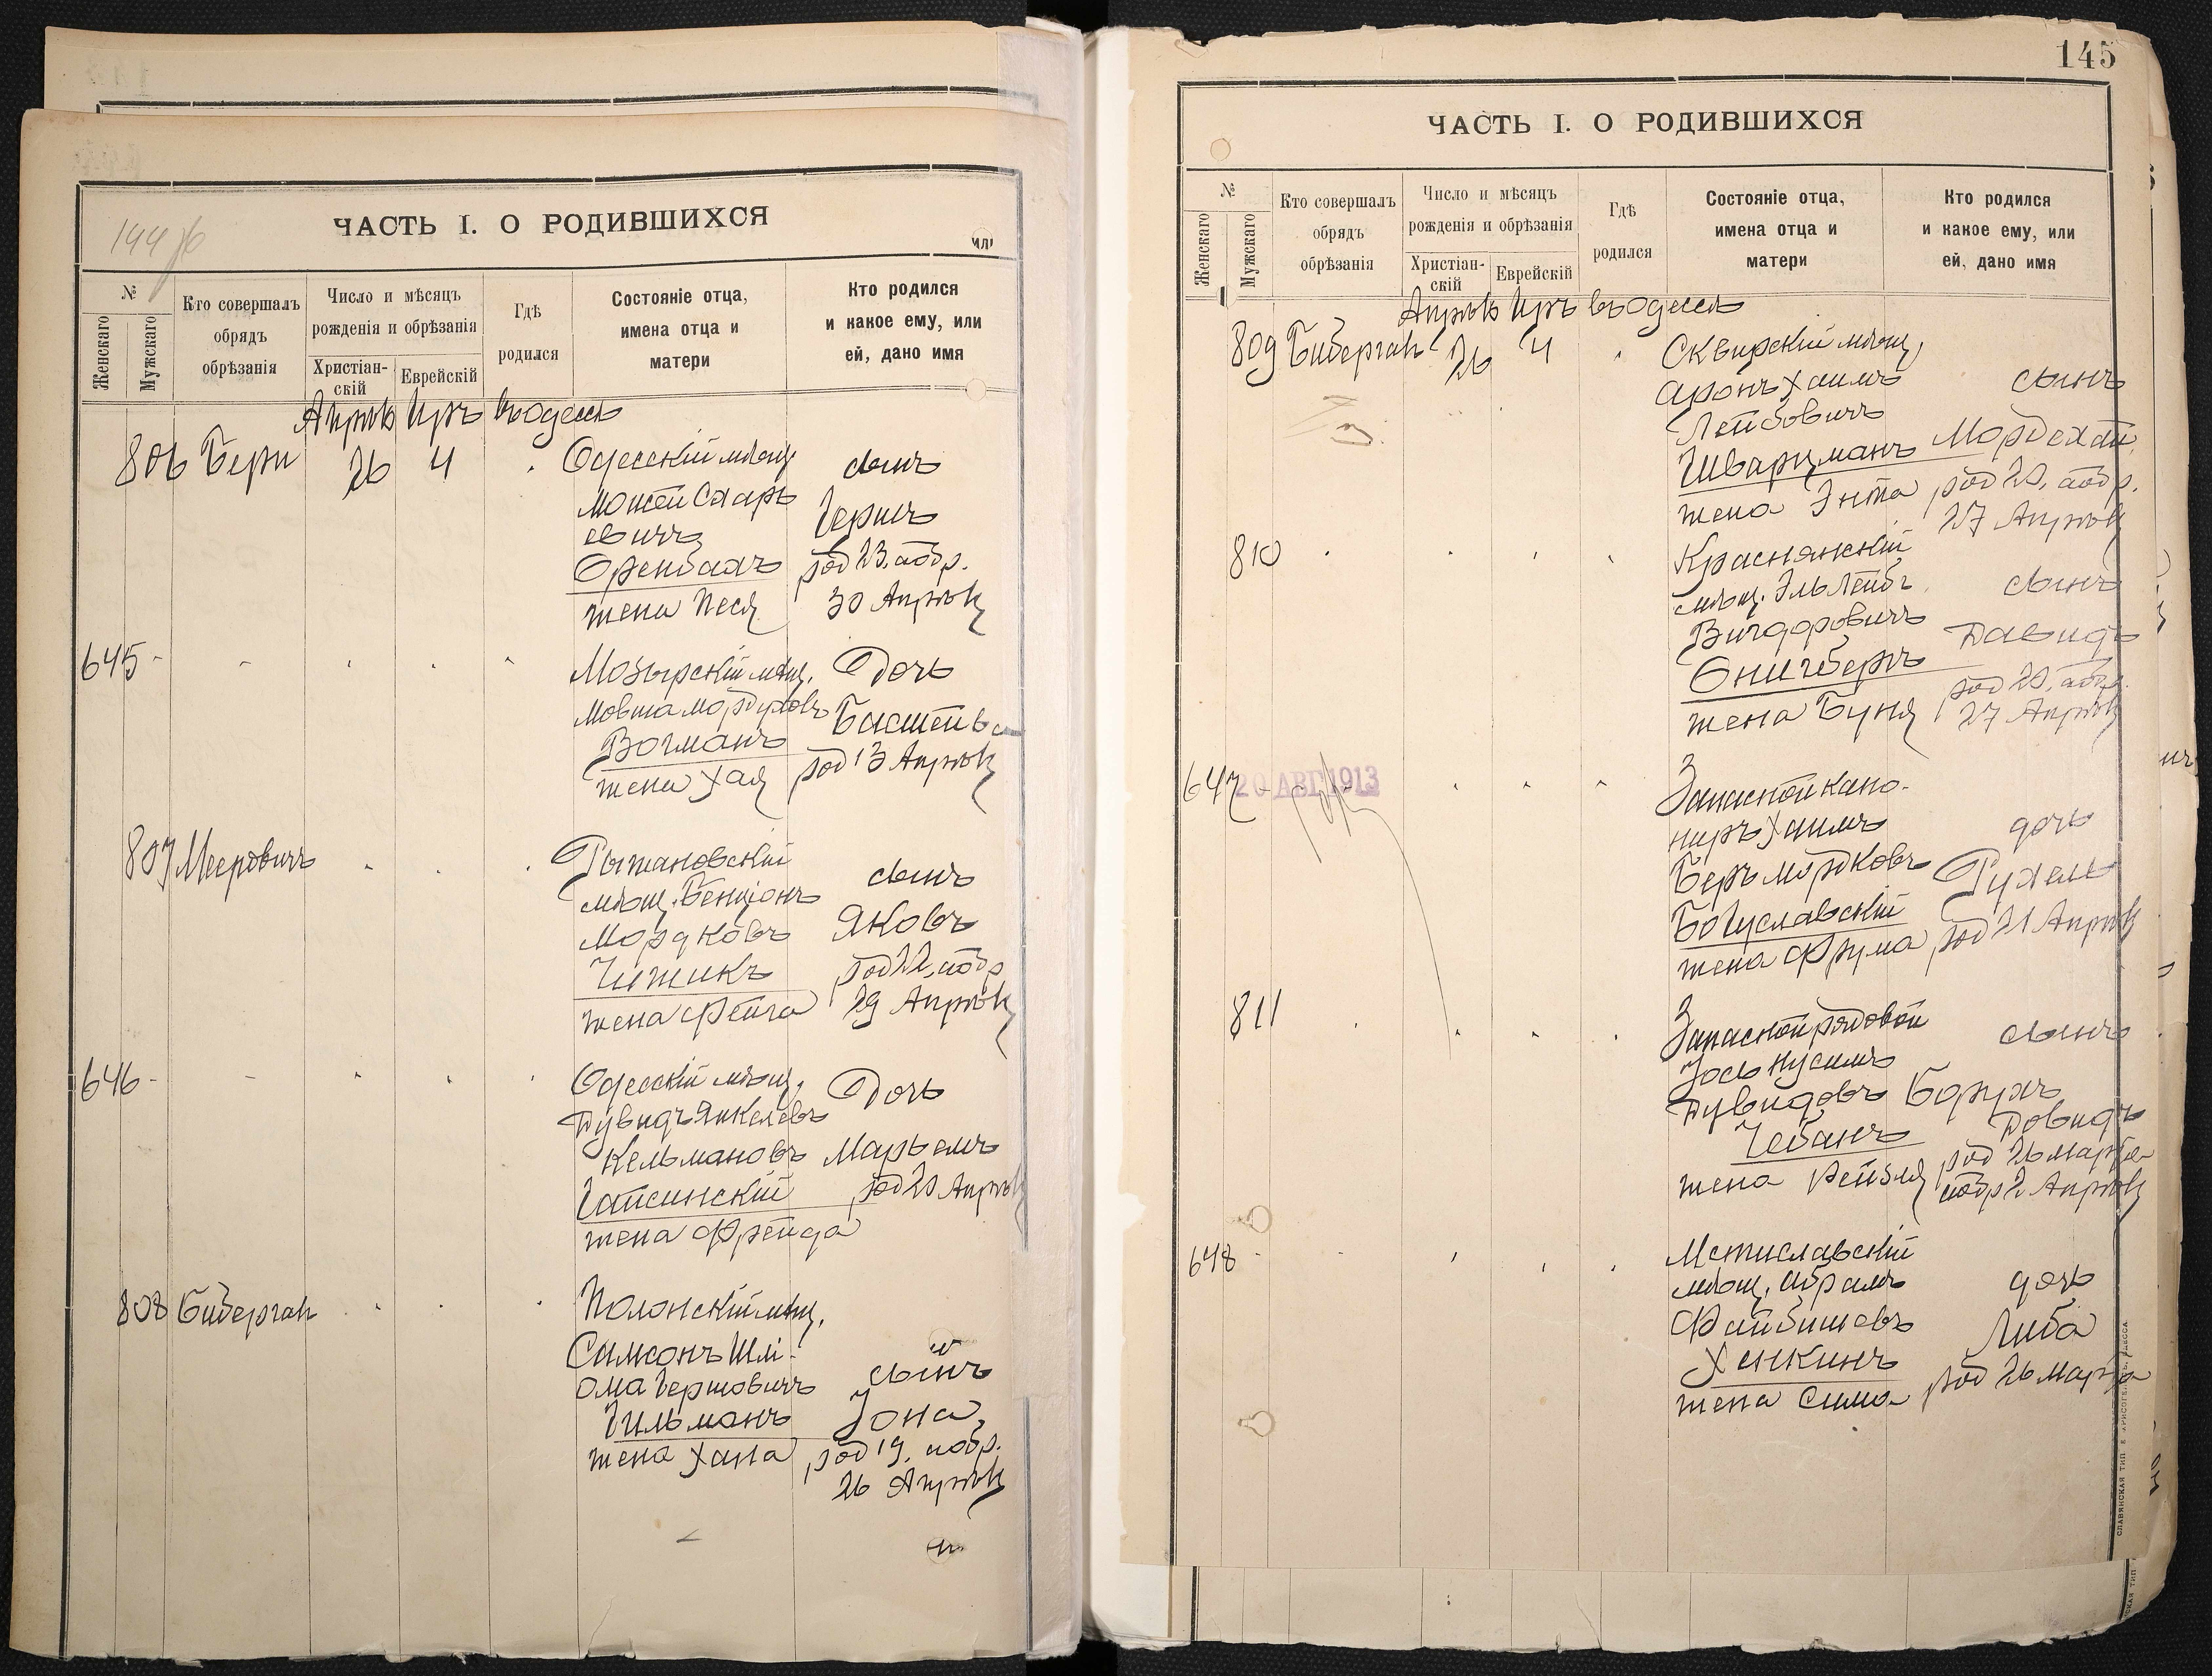 144 об
ЧАСТЬ I. О РОДИВШИХСЯ
или
№
Женскаго
Мужскаго
Кто совершалъ
обрядъ
обрѣзанія
Число и мѣсяцъ
рожденія и обрѣзанія
Христіан-
скій
Еврейскій
Гдѣ
родился
Состояніе отца,
имена отца и
матери
Кто родился
и какое ему, или
ей, дано имя
Апрѣль Иръ въ Одессѣ
806 Бери 26 4 Одесскій мѣщ. сынъ
Мошей Сахаръ
евичъ Гершъ
Оренбахъ род 23, а обр.
жена Песя 30 Апрѣля
645 Мозырскій мѣщ. Дочь
Мовша Мордуховъ Басшейва
Вогманъ род 13 Апрѣля
жена Хая
807 Мееровичъ Рыжановскій
мѣщ. Бенціонъ сынъ
Мордковъ Яковъ
Чижикъ род 22, а обр
жена Фейга 29 Апрѣля
646 Одесскій мѣщ. Дочь
Дувидъ Янкелевъ
Кельмановъ Марьемъ
Гайсинскій род 20 Апрѣля
жена Фрейда
808 Бибергалъ Полонскій мѣщ.
Самсонъ Шлі-
ома Гершовичъ сынъ
Гильманъ Іона,
жена Хана род 19, а обр.
26 Апрѣля
145
ЧАСТЬ I. О РОДИВШИХСЯ
№
Женскаго
Мужскаго
Кто совершалъ
обрядъ
обрѣзанія
Число и мѣсяцъ
рожденія и обрѣзанія
Христіан-
скій
Еврейскій
Гдѣ
родился
Состояніе отца,
имена отца и
матери
Кто родился
и какое ему, или
ей, дано имя
Апрѣль Иръ въ Одессѣ
809 Бибергалъ 26 4 Сквирскій мѣщ.
Аронъ Хаимъ сынъ
Лейбовичъ
Шварцманъ Мордехай,
жена Энта род 20, а обр.
27 Апрѣля
810 Краснянскій
мѣщ. Эль Лейбъ сынъ
Вигдоровичъ Давидъ
Онигберъ род 20, а обр.
жена Буня 27 Апрѣля
647 20 АВГ 1913 Запасной кано-
ниръ Хаимъ дочь
Беръ Мордковъ Рухель
Богуславскій род 21 Апрѣля
жена Фрума
811 Запасной рядовой сынъ
Іось Нусимъ
Дувидовъ Борухъ
Чебанъ Довидъ
жена Рейзля род 26 марта
обр 2 Апрѣля
648 Мстиславскій
мѣщ. Абрамъ дочь
Файбишевъ Либа
Хенкинъ род 26 Марта
жена Сима